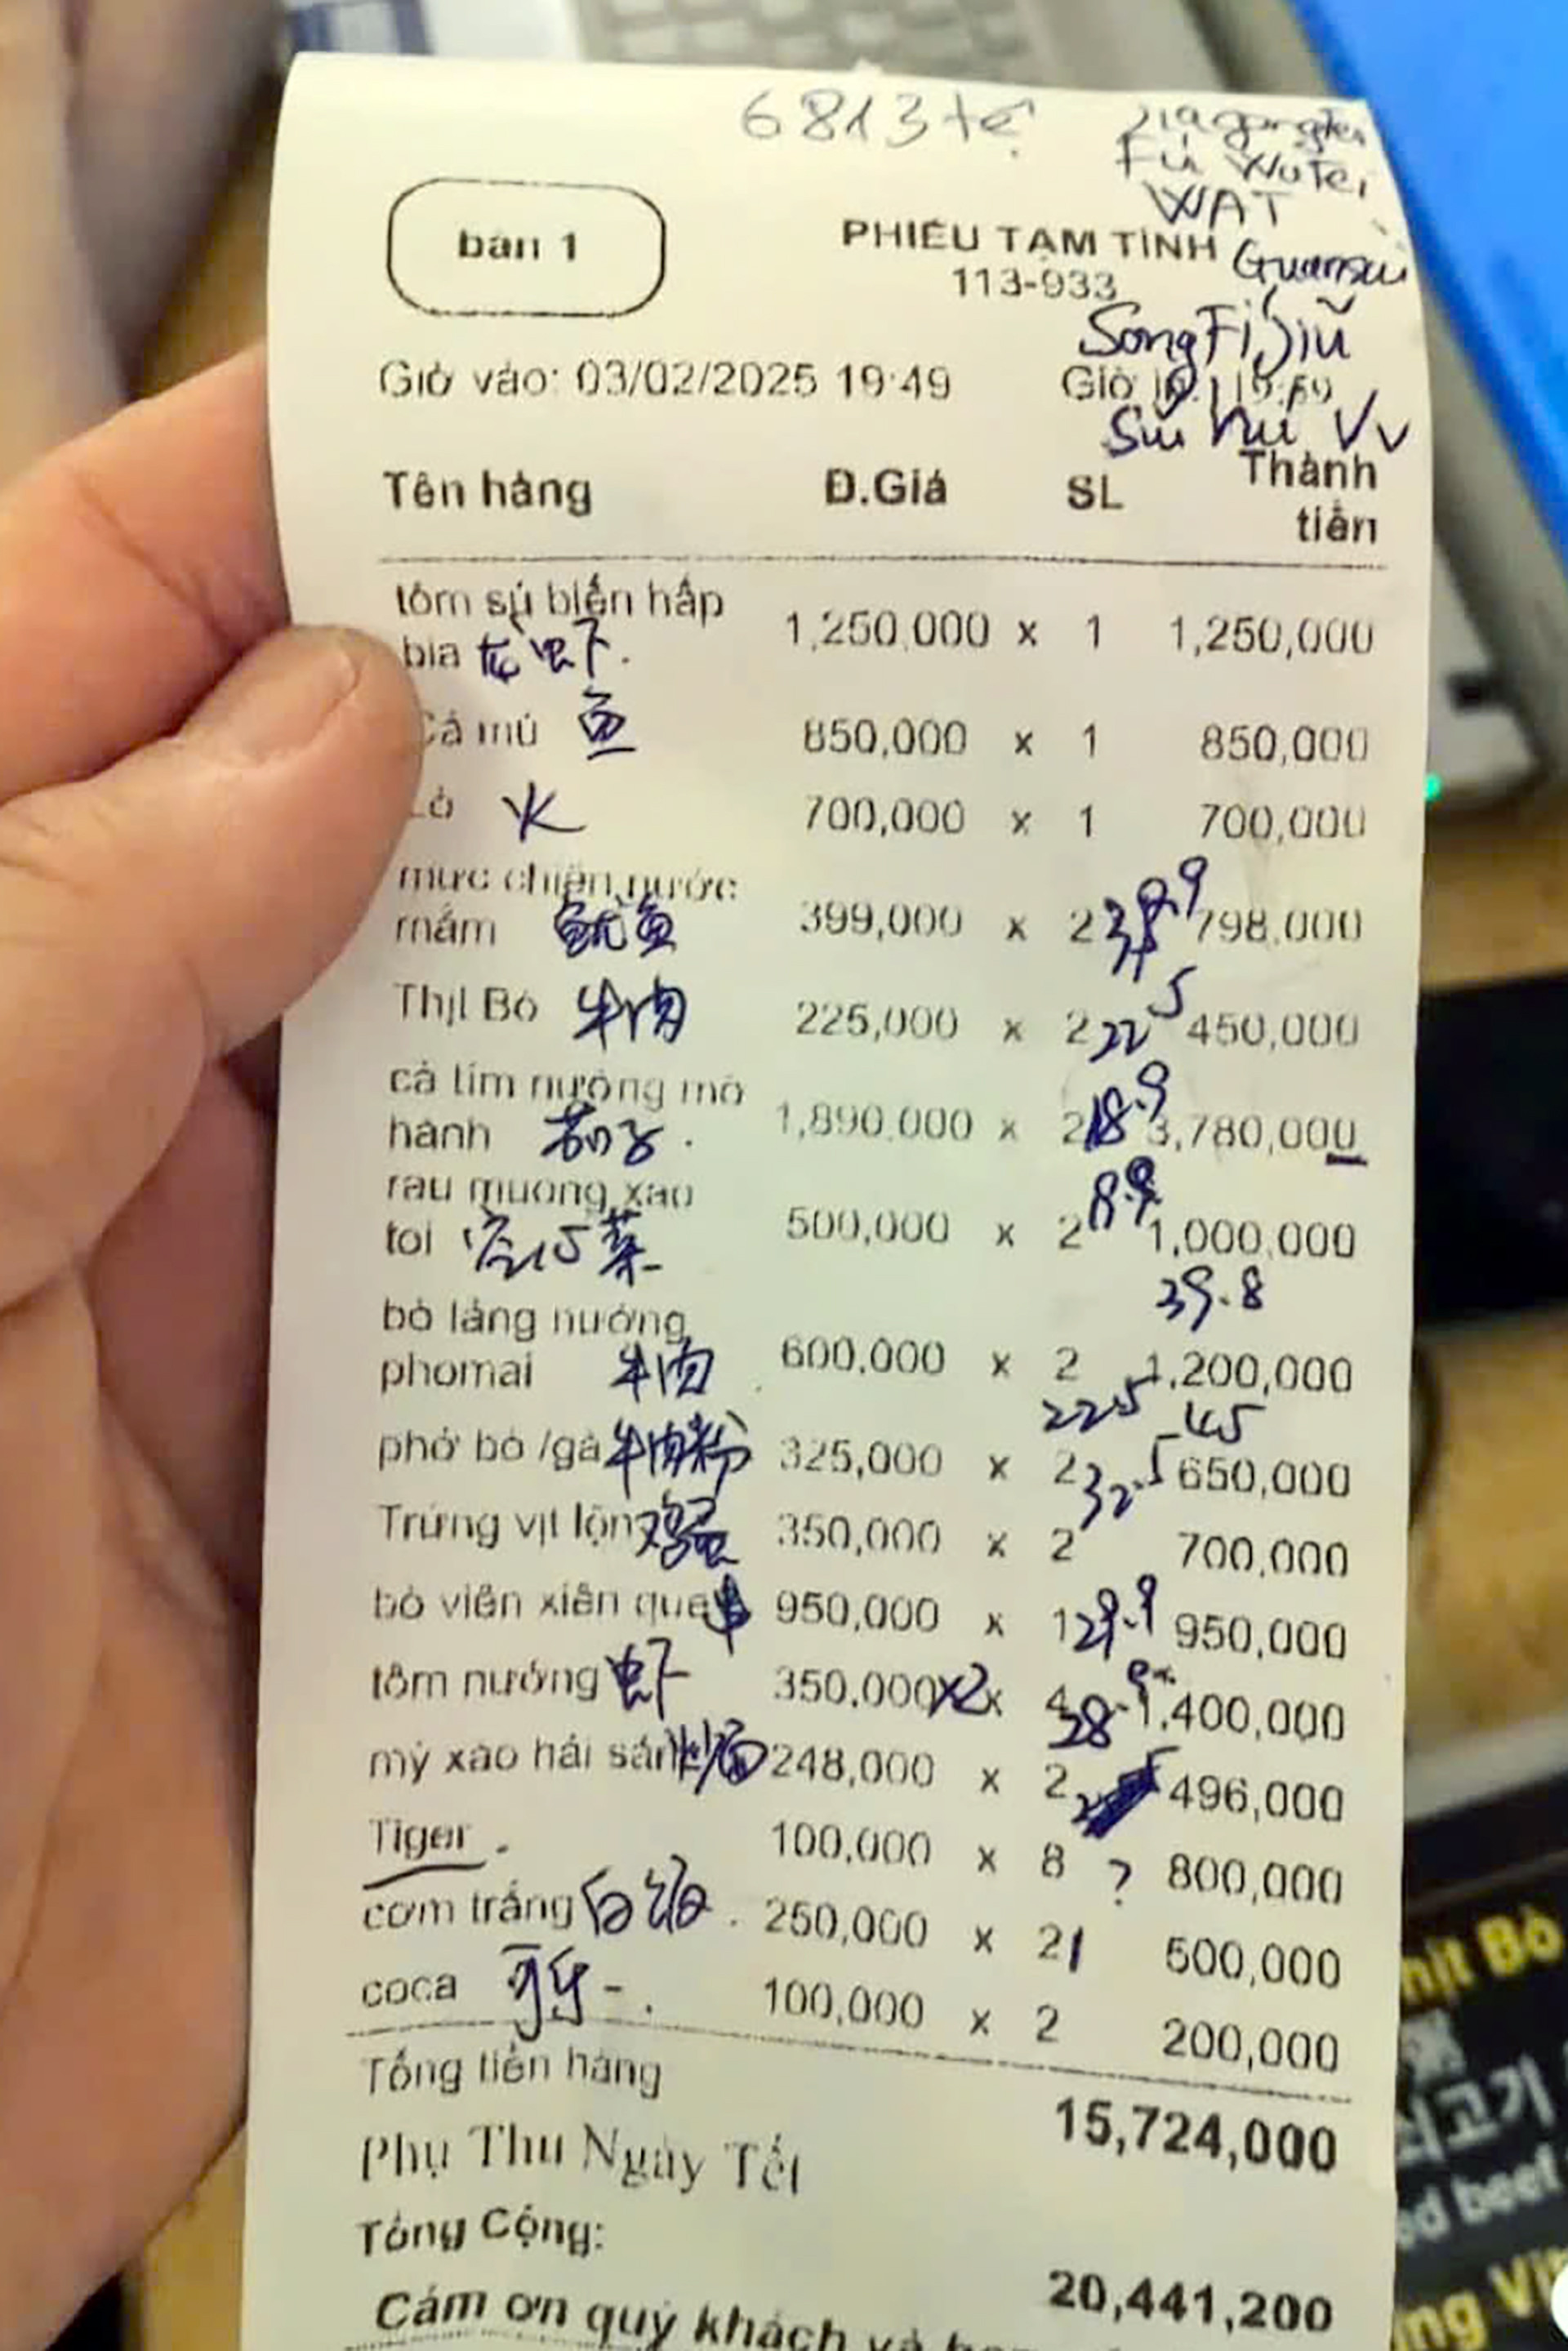 6813 tệ
Fú WuTei
WAT
bàn 1
PHIẾU TẠM TÍNH
113-933
SongFi Jiŭ
Giờ vào: 03/02/2025 19:49
Giờ in: 19:59
Tên hàng Đ.Giá SL Thành tiền
tôm sú biển hấp
bia 虾. 1,250,000 x 1 1,250,000
Cá mú 鱼 850,000 x 1 850,000
Lò 火 700,000 x 1 700,000
mực chiên nước
mắm 鱿鱼 399,000 x 2 39.9 798,000
Thịt Bò 牛肉 225,000 x 2 22.5 450,000
cà tím nướng mỡ
hành 茄子. 1,890,000 x 2 18.9 3,780,000
rau muống xào
tỏi 空心菜 500,000 x 2 8.9 1,000,000
39.8
bò lảng nướng
phomai 牛肉 600,000 x 2 1,200,000
22.5 45
phở bò /gà 牛肉粉 325,000 x 2 32.5 650,000
Trứng vịt lộn 鸡蛋 350,000 x 2 700,000
bò viên xiên que 串 950,000 x 1 29.9 950,000
tôm nướng 虾 350,000 x2 x 4 28 1,400,000
mỳ xào hải sản 炒面 248,000 x 2 496,000
Tiger. 100,000 x 8 ? 800,000
cơm trắng 白饭. 250,000 x 2 1 500,000
coca 可乐 100,000 x 2 200,000
Tổng tiền hàng
15,724,000
Phụ Thu Ngày Tết
Tổng Cộng:
20,441,200
Cảm ơn quý khách và
hịt Bò
쇠고기
ed beef